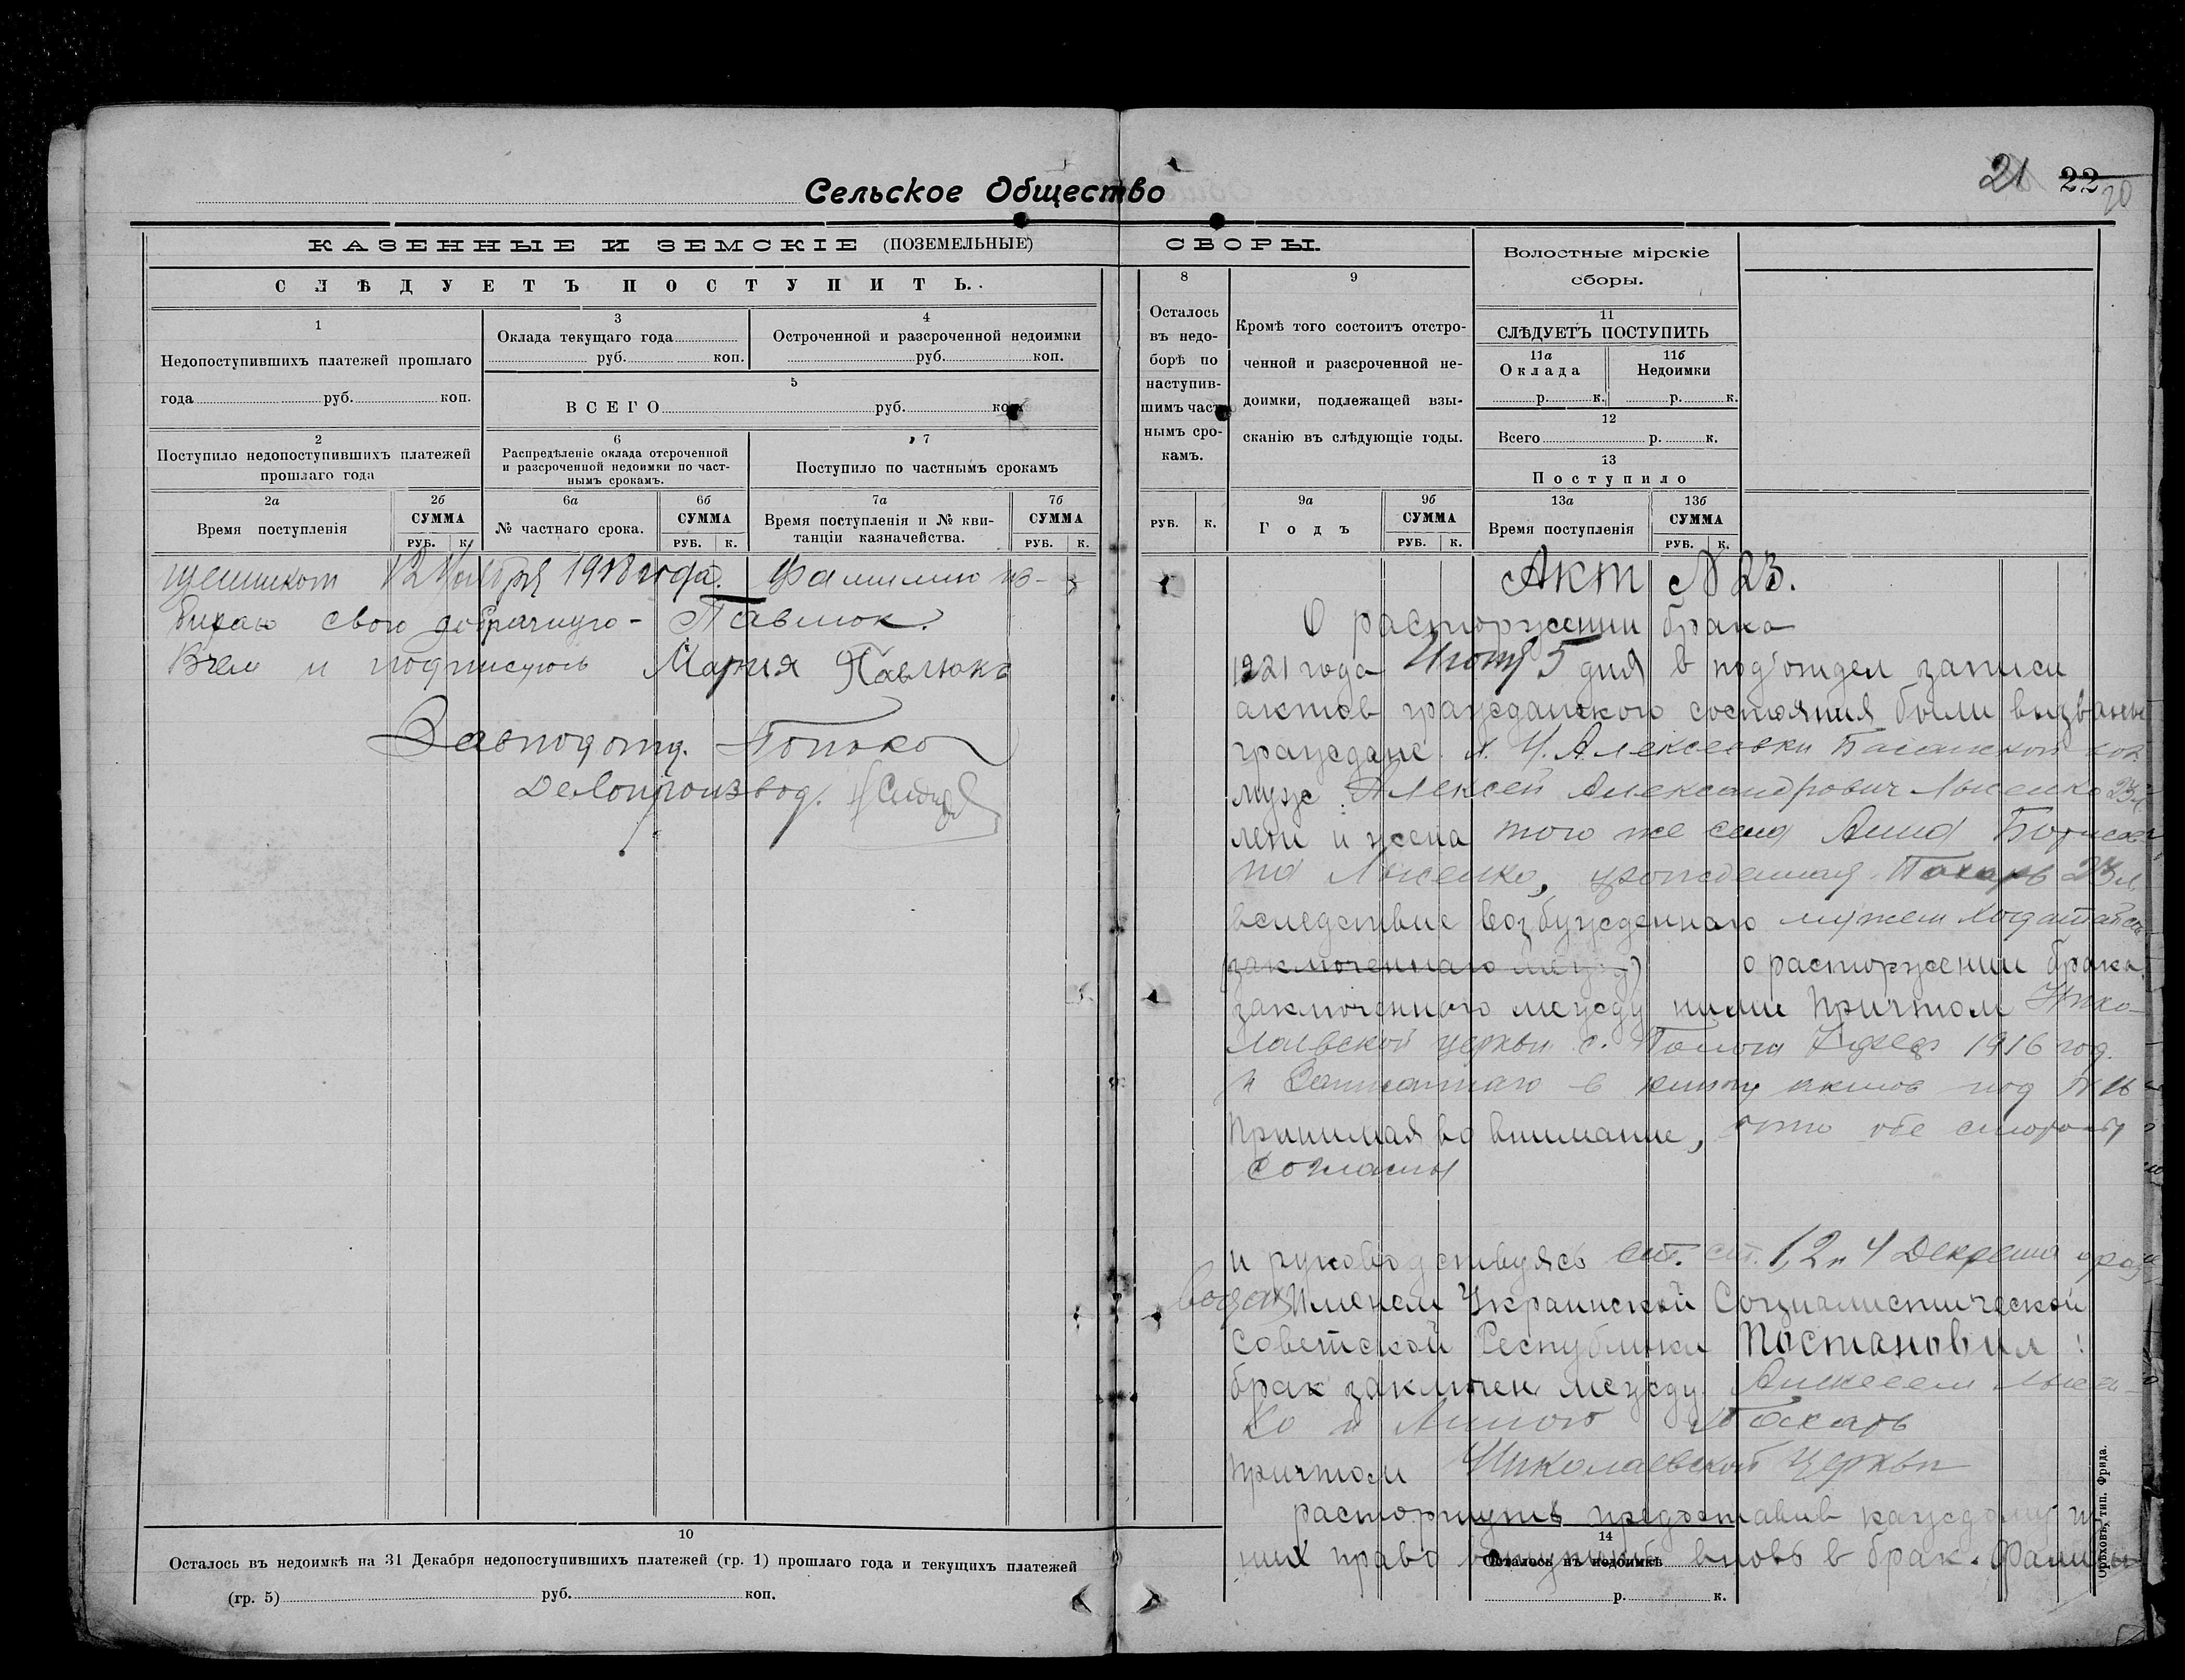 21 22 20
Сельское Общество
КАЗЕННЫЕ И ЗЕМСКІЕ (ПОЗЕМЕЛЬНЫЕ) СБОРЫ.
СЛѢДУЕТЪ ПОСТУПИТЬ.
1
Недопоступившихъ платежей прошлаго
года руб. коп.
3
Оклада текущаго года
руб. коп.
4
Остроченной и разсроченной недоимки
руб. коп.
5
ВСЕГО руб. коп.
2
Поступило недопоступившихъ платежей
прошлаго года
6
Распредѣленіе оклада отсроченной
и разсроченной недоимки по част-
нымъ срокамъ.
7
Поступило по частнымъ срокамъ
2а
Время поступленія
2б
СУММА
РУБ. К.
6а
№ частнаго срока.
6б
СУММА
РУБ. К.
7а
Время поступленія и № кви-
танціи казначейства.
7б
СУММА
РУБ. К.
12 Ноября 1918 года. Фамилию из-
бираю свою добрачную - Павлюк.
В чем и подписуюсь Мария Павлюкъ
Завподотд. Попко
Делопроизвод.
10
Осталось въ недоимкѣ на 31 Декабря недопоступившихъ платежей (гр. 1) прошлаго года и текущихъ платежей
(гр. 5) руб. коп.
8
Осталось
въ недо-
борѣ по
наступив-
шимъ част-
нымъ сро-
камъ.
РУБ. К.
9
Кромѣ того состоитъ отстро-
ченной и разсроченной не-
доимки, подлежащей взы-
сканію въ слѣдующіе годы.
9а
Годъ
9б
СУММА
РУБ. К.
Волостные мірскіе
сборы.
11
СЛѢДУЕТЪ ПОСТУПИТЬ
11а
Оклада
р. к.
11б
Недоимки
р. к.
12
Всего р. к.
13
Поступило
13а
Время поступленія
13б
СУММА
РУБ. К.
Акт № 23.
О расторжении брака
1921 года 5 дня в под'отдел записи
актов гражданского состояния были вызваны
граждане Алексеевки
муж: Алексей Александрович Лысенко 23
лет и жена того же села Анна Борисов-
на Лысенко, урожденная Токарь 23 л.
вследствие возбужденного мужем ходатайства
заключенного между) о расторжении брака,
заключенного между ними Причтом Нико-
лаевской церкви с. Пологи 7 1916 год.
и Записанного в книгу актов под № 16
Принимая во внимание, что обе стороны
согласны
и руководствуясь ст. ст. 1, 2 и 4 Декрета о раз-
водах Именем Украинской Социалистической
Советской Республики Постановил:
брак заключен между Алексеем Лысен-
ко и Анною Токарь
Причтом Николаевской Церкви
расторгнуть предоставив каждому из
них право вступить вновь в брак. Фамилы
14
Осталось въ недоимкѣ
р. к.
Орѣховъ, тип. Фрида.